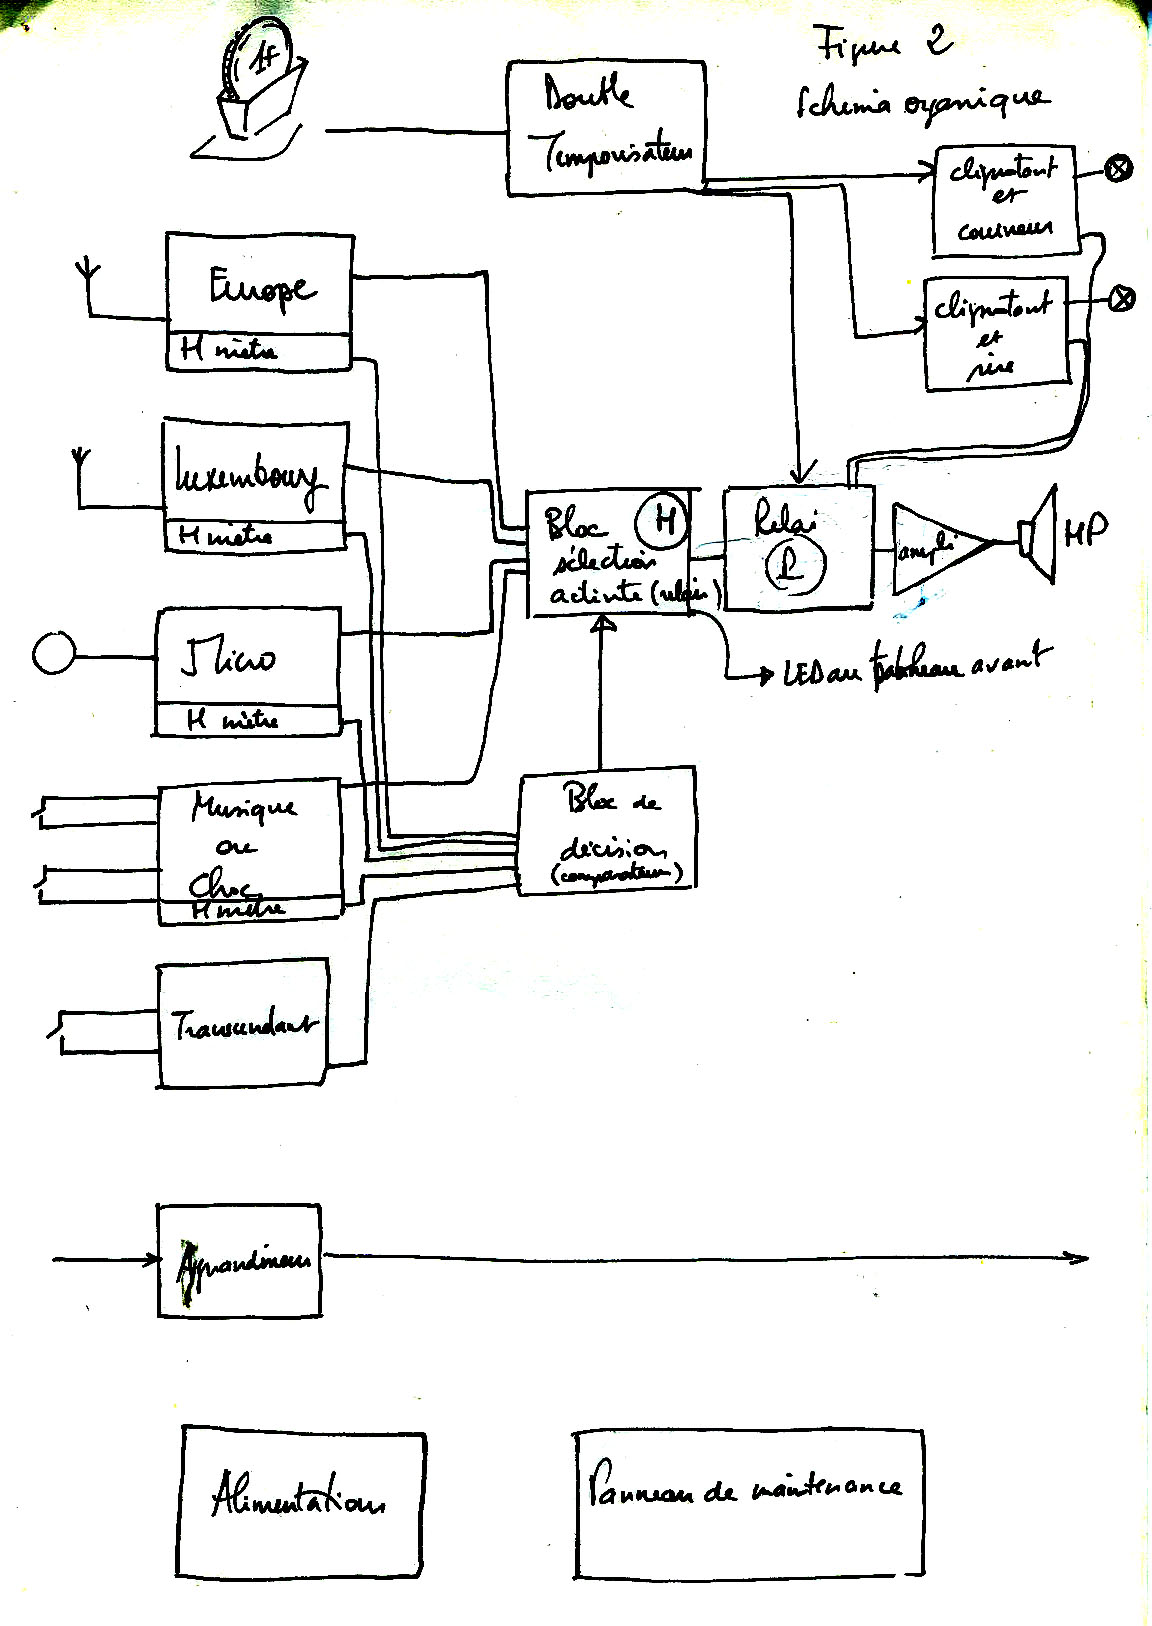 Figure 2
Schema organique
1F
Double
Temporisateur
clignotant
et
couineur
clignotant
et
rire
Europe
H mètre
Luxembourg
H mètre
Micro
H mètre
Musique
ou
Choc
H mètre
Transcendant
Bloc
sélection
activité (relais)
H
Relai
R
ampli
HP
LED au panneau avant
Bloc de
décision
(comparateur)
Alimentations
Panneau de maintenance